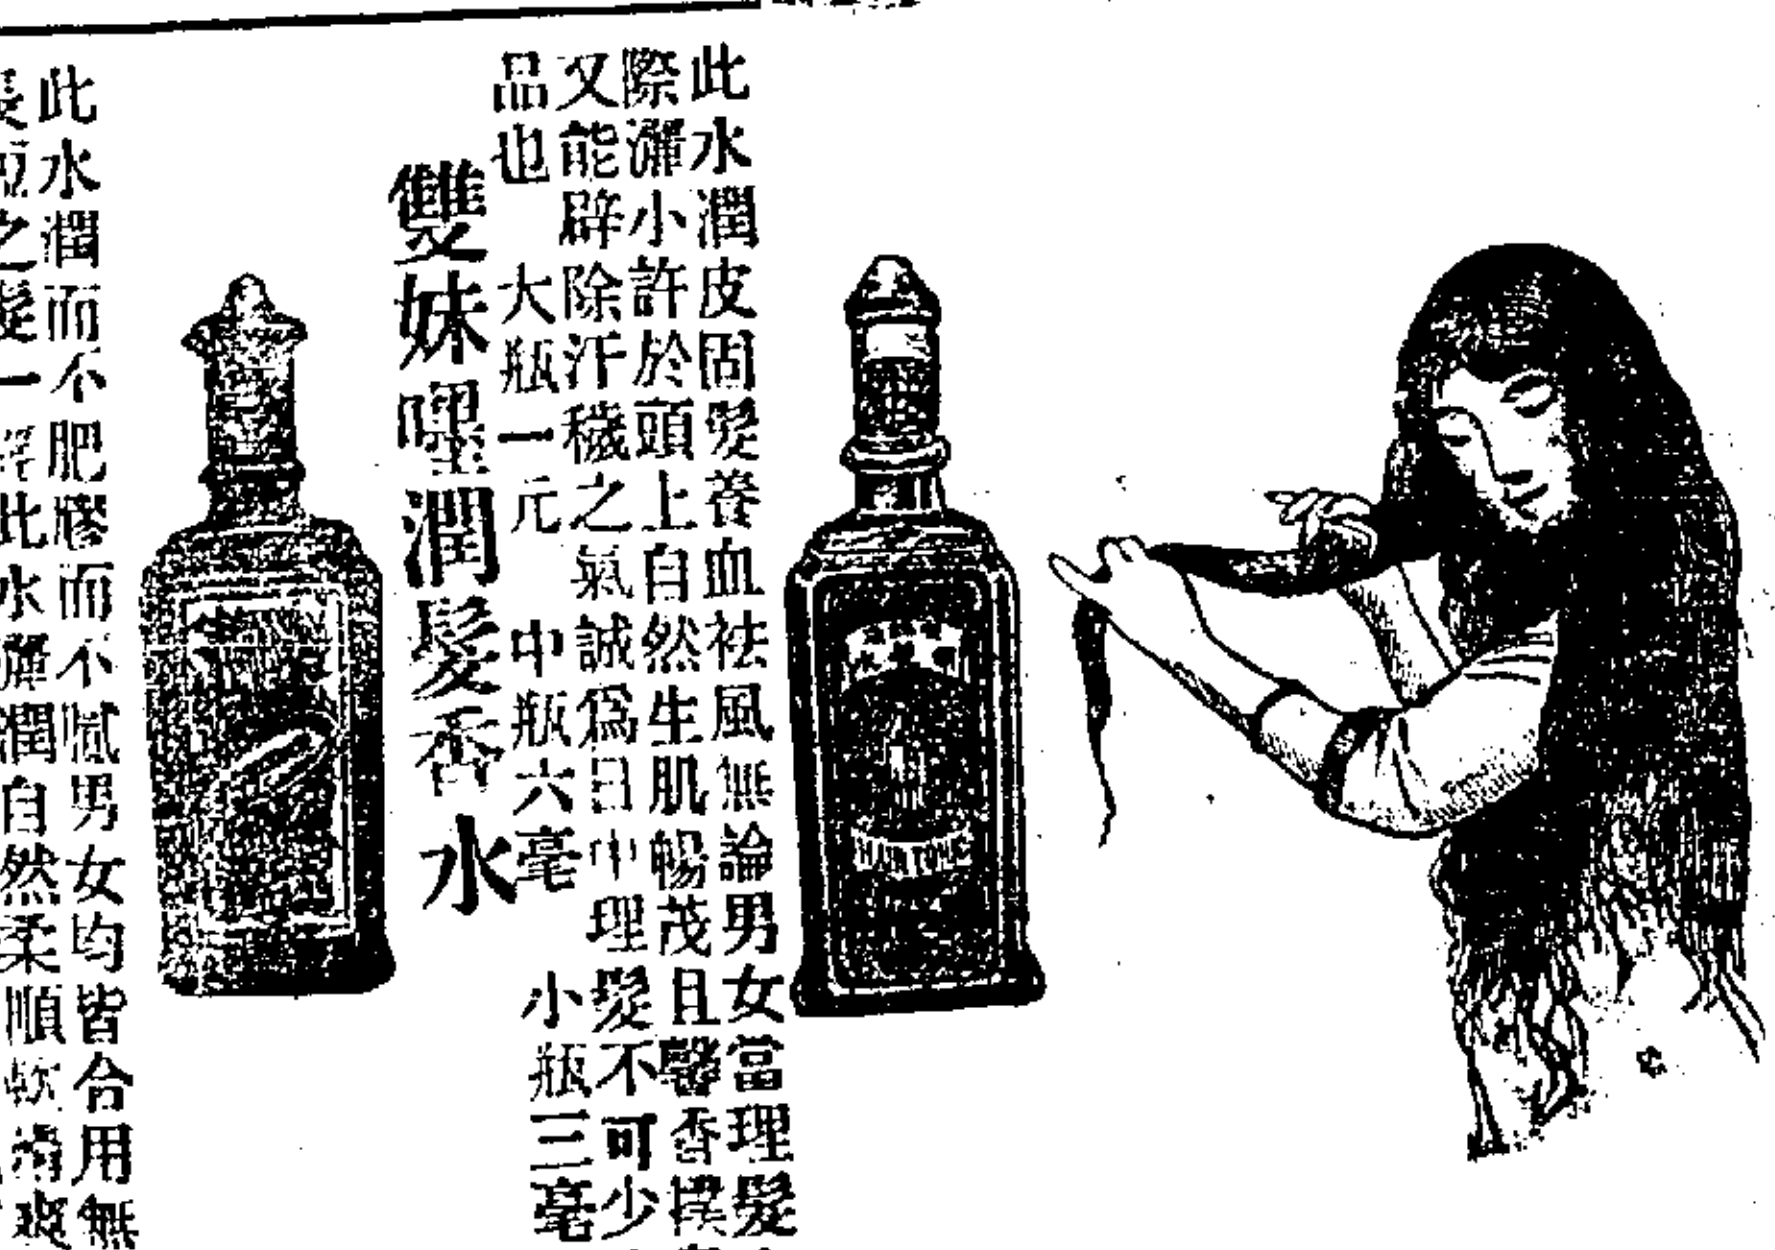 此水潤皮固髮養血祛風無論男女當理髮
際灑小許於頭上自然生肌暢茂且馨香撲
又能辟除汗穢之氣誠爲日中理髮不可少
品也 大瓶一元 中瓶六毫 小瓶三毫
HAIR TONIC
雙妹嚜潤髮香水
此水潤而不肥膠而不膩男女均皆合用無
長短之髮一經此水灑潤自然柔順軟滑